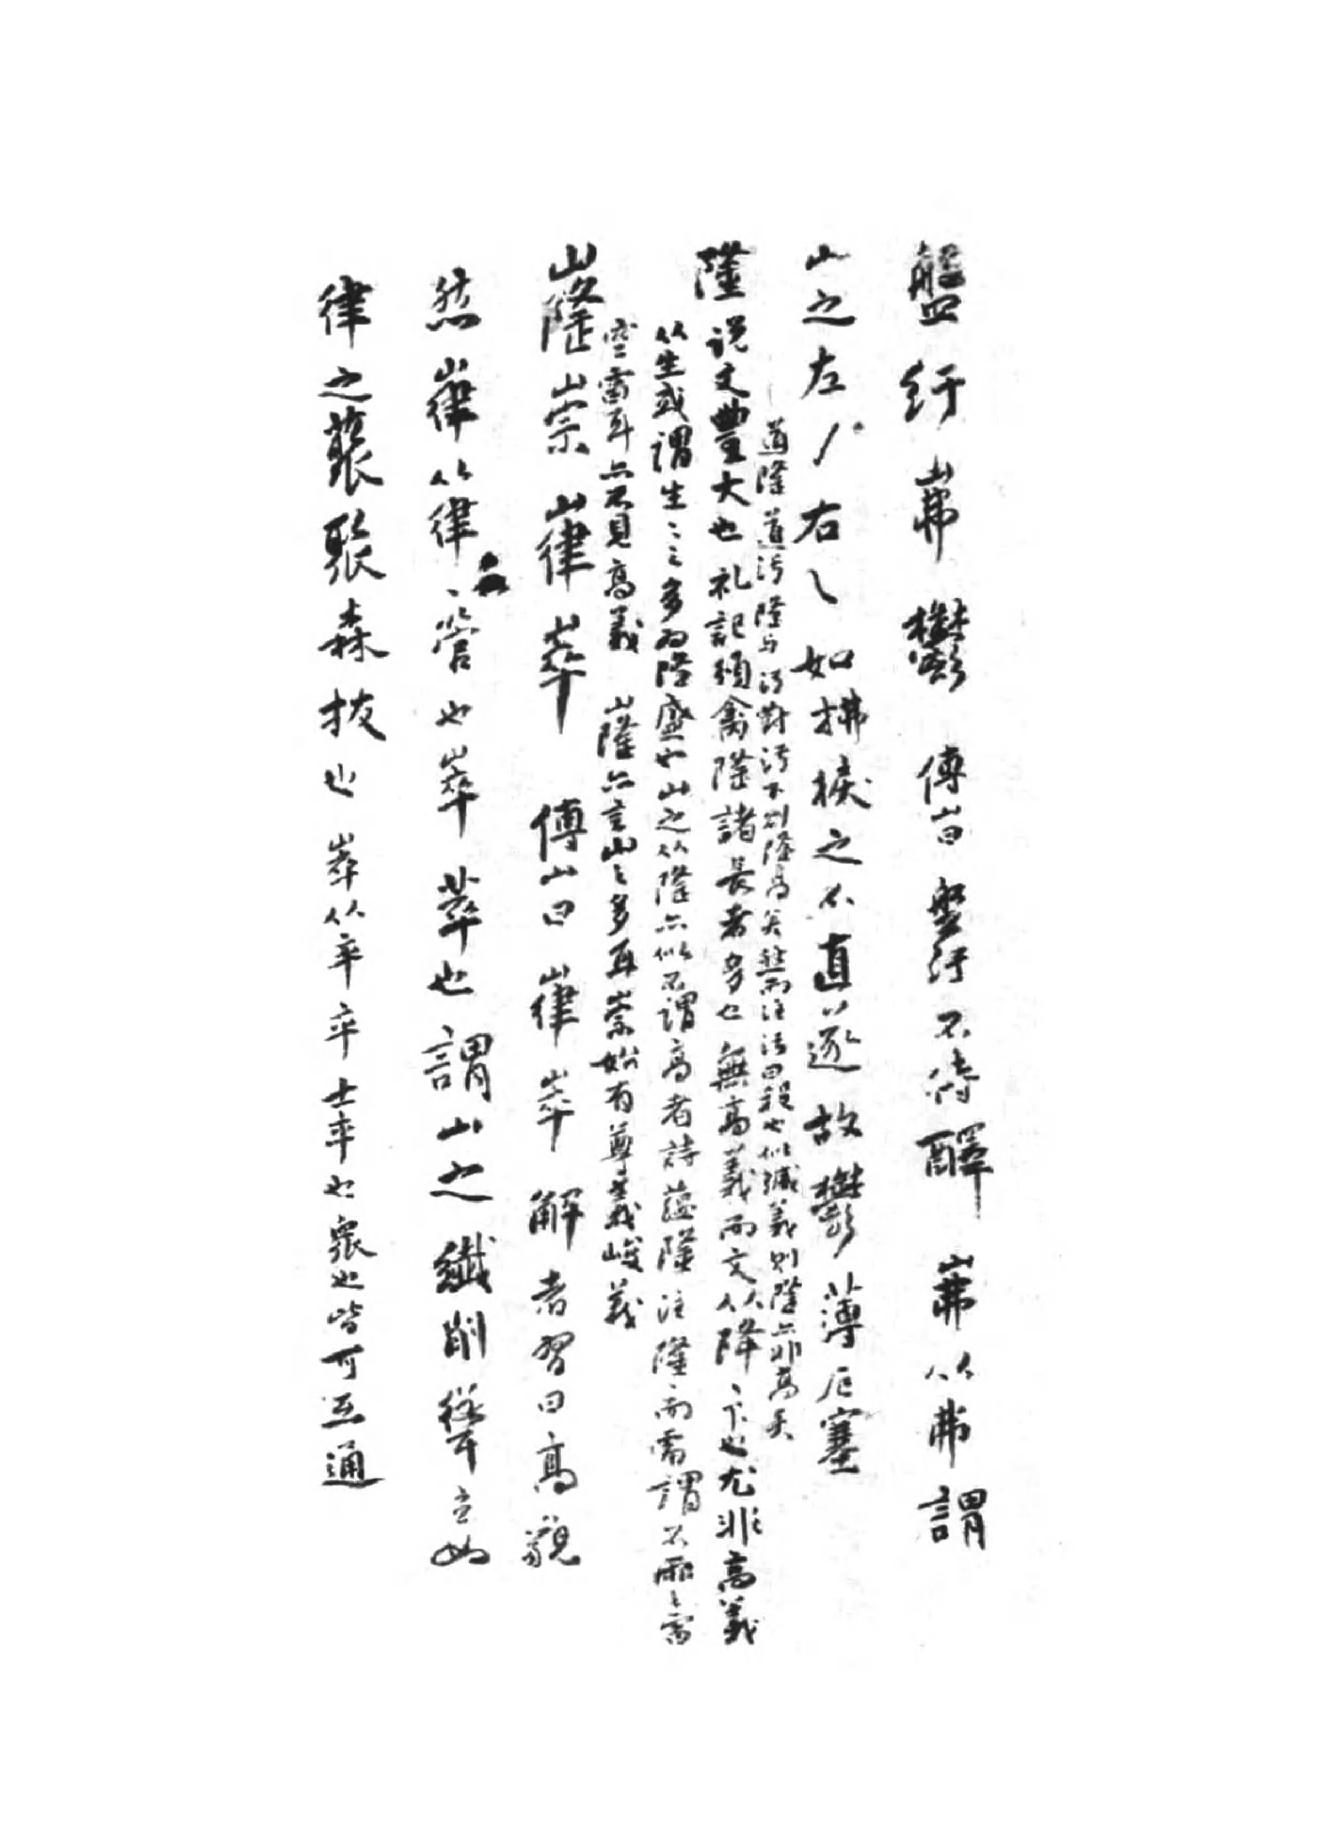 盤紆岪鬱 傅山曰 盤紆不待釋 岪从弗 謂
山之左丿右乀 如拂捩之不直遂 故鬱薄厄塞
道隆道污 隆與污對 污下則隆高矣 然而注污曰殺也 似減義 則隆亦非高矣
隆 说文豐大也 礼記頒禽隆諸長者 多也 無高義 而文从降 丶下也 尤非高義
从生 或謂生〻之多為隆盛也 山之从隆 亦似不謂高者 詩蘊隆 注隆而雷 謂不雨〻雷
空雷耳 亦不見高義 嶐亦言山〻多耳 崇始有尊義峻義
嶐崇嵂崒 傅山曰 嵂崒 解者習曰高皃
然嵂从律 丶管也 崒 萃也 謂山之纖削聳立如
律之叢聚森拔也 崒从卒 卒 士卒也 眾也 皆可互通